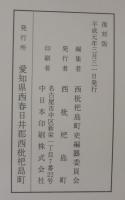 復刻版
平成元年三月三一日発行
編集者 西枇杷島町史編纂委員会
発行者 西枇杷島町
名古屋市中区新栄一丁目7番22号
印刷者 中日本印刷株式会社
発行所 愛知県西春日井郡西枇杷島町